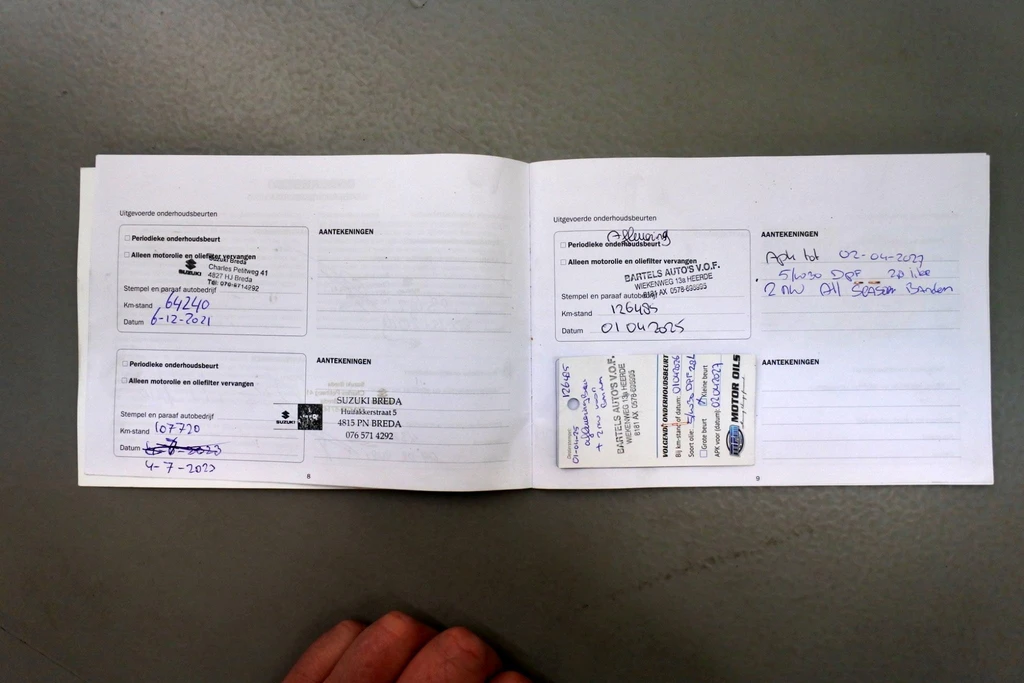 Uitgevoerde onderhoudsbeurten
Periodieke onderhoudsbeurt
Alleen motorolie en oliefilter vervangen
SUZUKI
Suzuki Breda
Charles Petitweg 41
4827 HJ Breda
Tel: 076-5714292
Stempel en paraaf autobedrijf
Km-stand 64240
Datum 6-12-2021
AANTEKENINGEN
Periodieke onderhoudsbeurt
Alleen motorolie en oliefilter vervangen
Stempel en paraaf autobedrijf
Km-stand 107720
Datum
4-7-2023
AANTEKENINGEN
SUZUKI
SUZUKI BREDA
Huifakkerstraat 5
4815 PN BREDA
076 571 4292
8
Uitgevoerde onderhoudsbeurten
Aflevering
Periodieke onderhoudsbeurt
Alleen motorolie en oliefilter vervangen
BARTELS AUTO'S V.O.F.
WIEKENWEG 13a HEERDE
8181 AX 0578-695995
Stempel en paraaf autobedrijf
Km-stand 126485
Datum 01 04 2025
AANTEKENINGEN
Apk tot 02-04-2027
5/w30 DPF
2 nw All Season Banden
126485
01-04-25
+ 2 nw
BARTELS AUTO'S V.O.F.
WIEKENWEG 13a HEERDE
8181 AX 0578-695995
VOLGENDE ONDERHOUDSBEURT
Bij km-stand of datum: 01042026
Soort olie: 5/w30 DPF
Grote beurt Kleine beurt
APK voor (datum): 02042027
MPM MOTOR OILS
AANTEKENINGEN
9